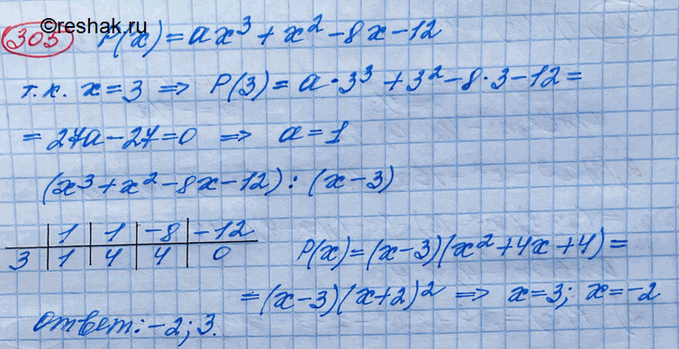 ©reshak.ru
303 P(x)=ax³+x²-8x-12
т.к. x=3 => P(3)=a·3³+3²-8·3-12=
=27a-27=0 => a=1
(x³+x²-8x-12):(x-3)
1 1 -8 -12
3 1 4 4 0
P(x)=(x-3)(x²+4x+4)=
=(x-3)(x+2)² => x=3; x=-2
ответ: -2; 3.